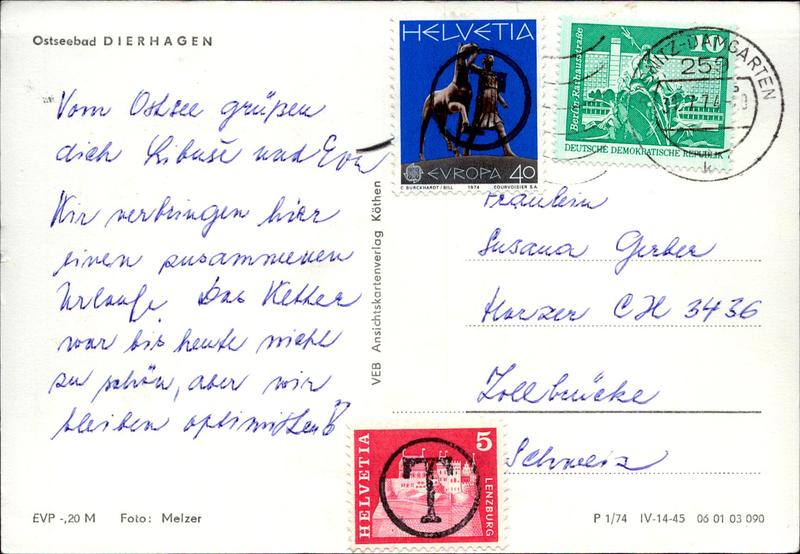 Ostseebad DIERHAGEN
Vom Ostsee grüßen
dich Libuše und Eva
Wir verbringen hier
einen zusammenen
Urlaub. Das Wetter
war bis heute nicht
zu schön, aber wir
bleiben optimisten
VEB Ansichtskartenverlag Köthen
HELVETIA
EVROPA 40
C. BURCKHARDT/BILL 1974 COURVOISIER S.A.
10
Berlin-Rathausstraße
DEUTSCHE DEMOKRATISCHE REPUBLIK
NITZ-DAMGARTEN
259
k
Fräulein
Susana Gerber
Harzer CH 3436
Zollbrücke
Schweiz
HELVETIA
5
LENZBURG
T
EVP -,20 M Foto: Melzer
P 1/74 IV-14-45 06 01 03 090